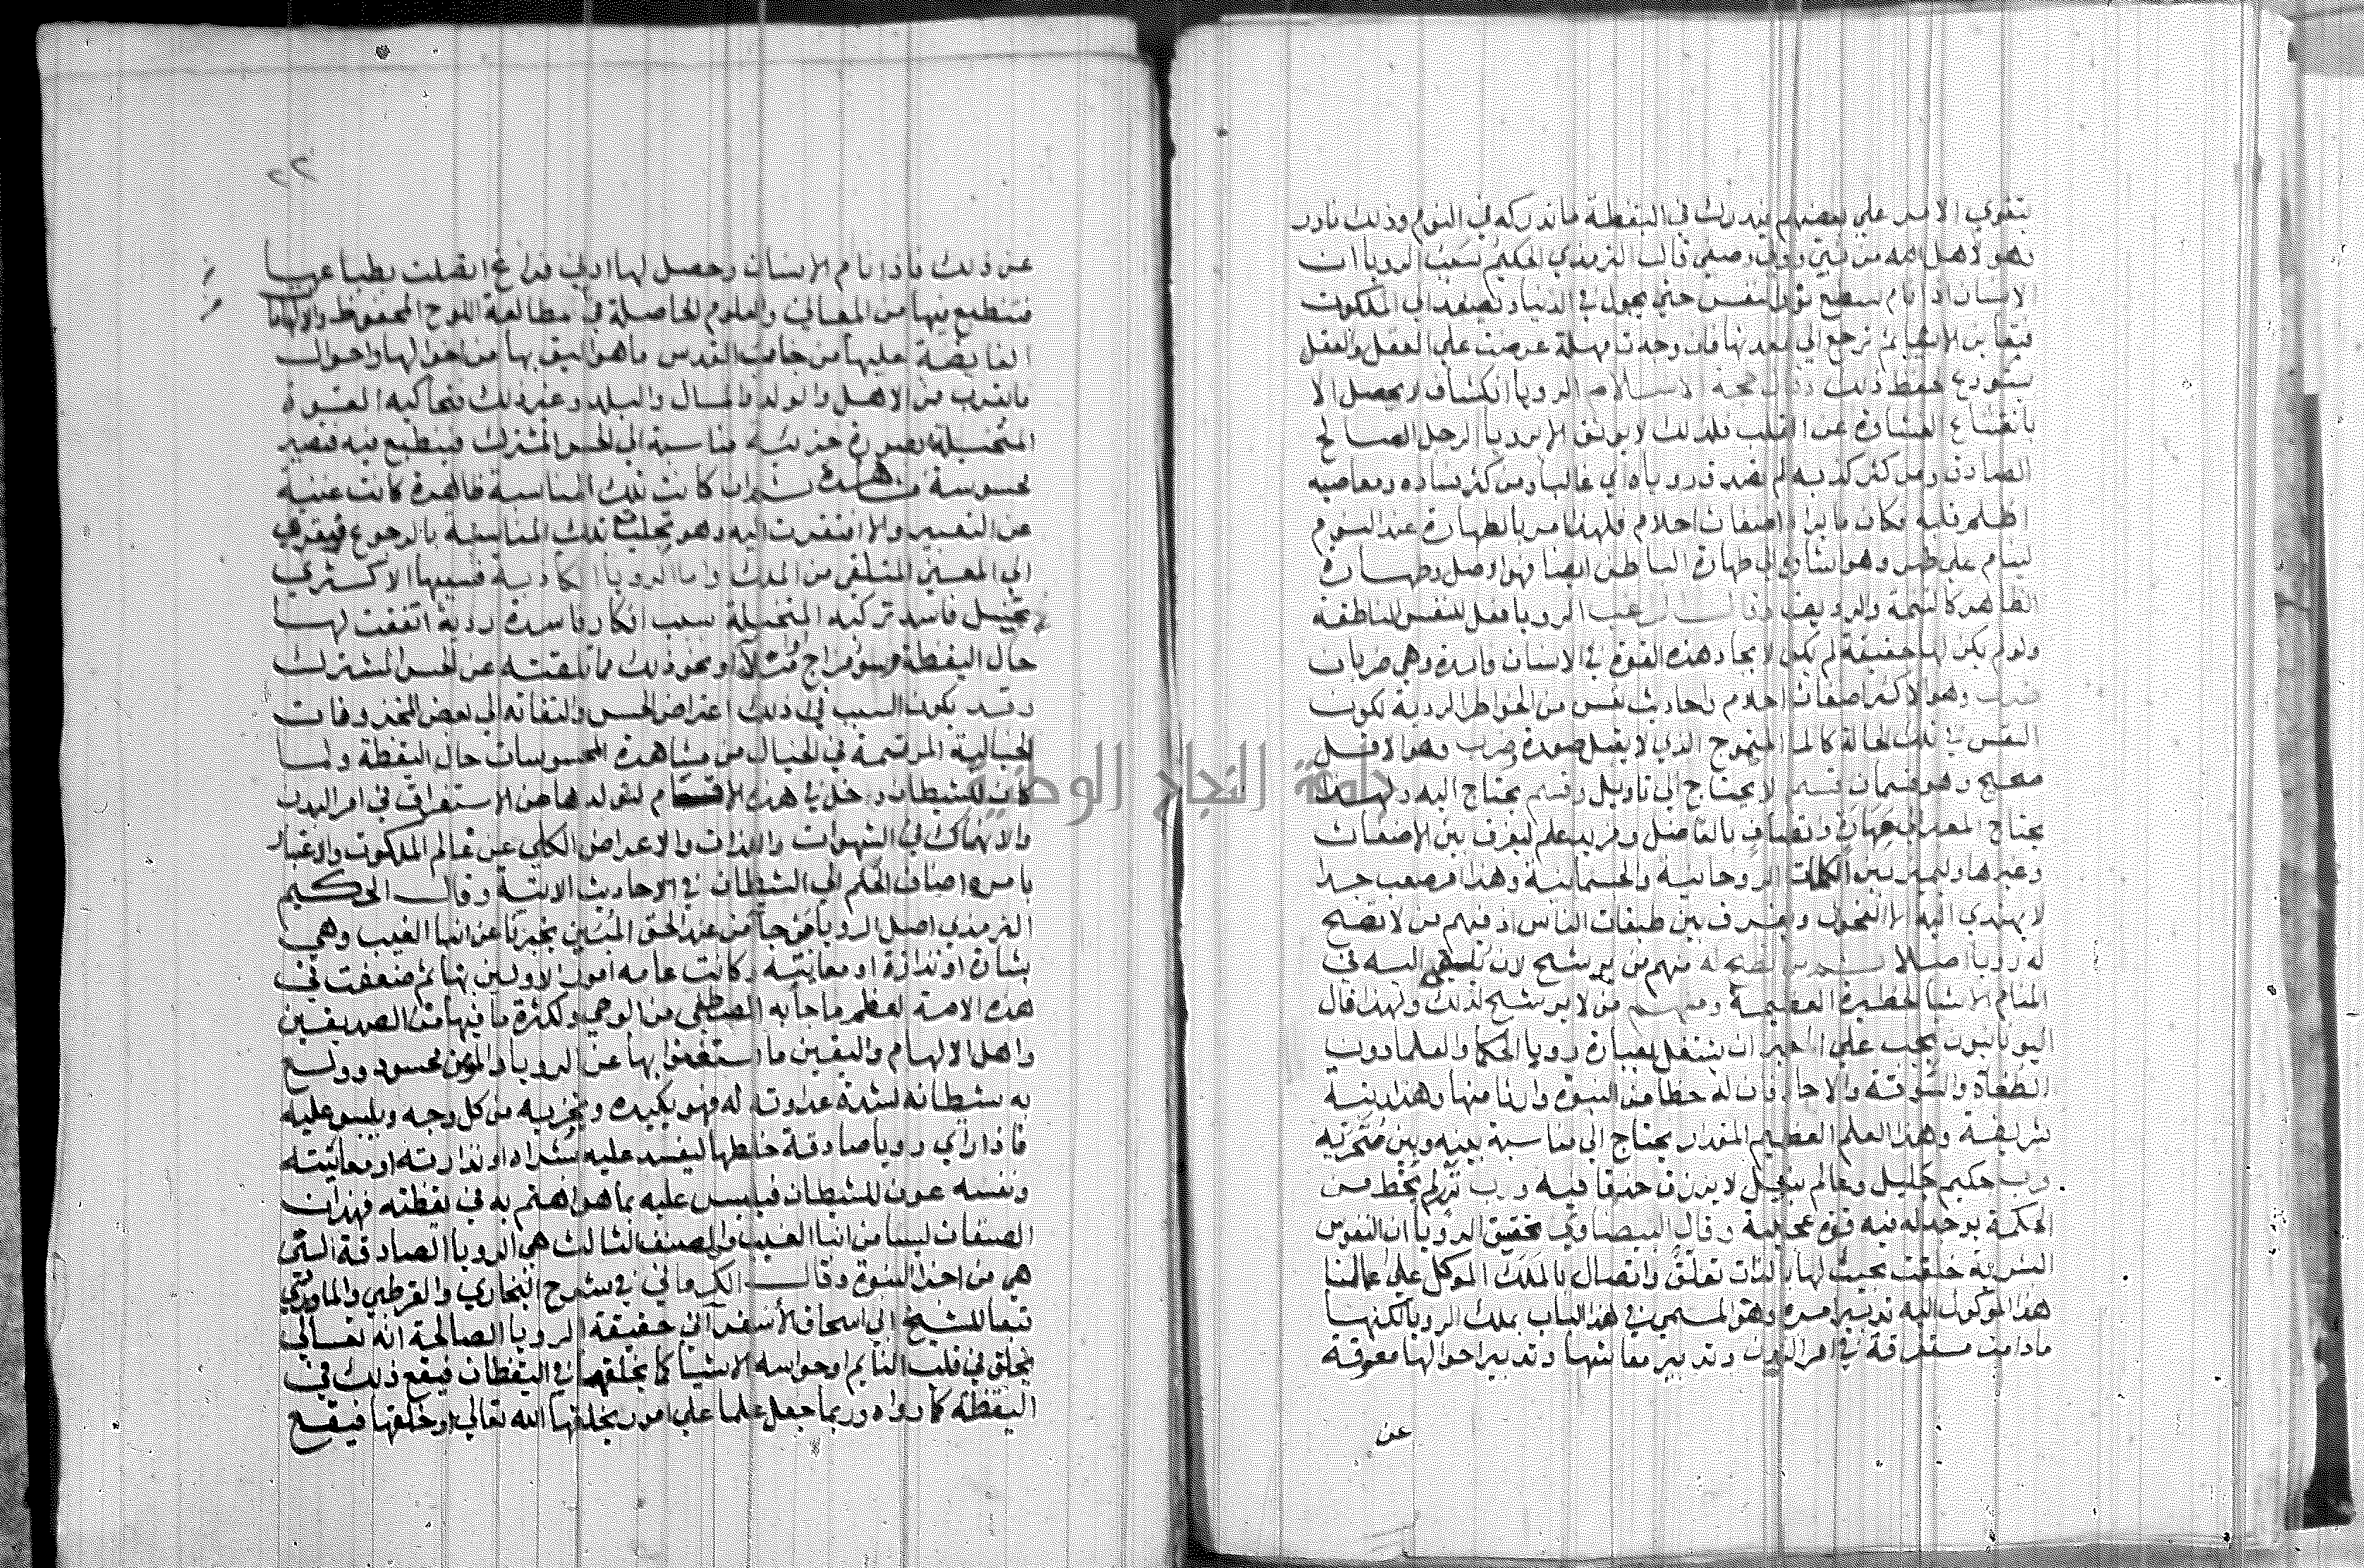 بتقوي الامر علي بعضهم فيدرك في اليقظة ما تدركه في النوم وذلك نادر
وهو لاهل قال الترمذي الحكيم سبب الرويا ان
الانسان اذا نام سطع نور النفس حتي يجول في الدنيا ويصعد الي الملكوت
فيعاين الاشيا ثم ترجع الي معدنها فان وجدت مهلة عرضت علي العقل والعقل
يستودع لحفظ ذلك وقال حجة الاسلام الرويا انكشاف لا يحصل الا
بانقشاع الغشاوة عن القلب فلذلك لا يوثق الا برويا الرجل الصالح
الصادق ومن كثر كذبه لم تصدق روياه اي غالبا ومن كثر فساده ومعاصيه
اظلم قلبه فكان ما يراه اضغاث احلام فلهذا امر بالطهارة عند النوم
لينام علي طهر وهو اشارة الي طهارة الباطن ايضا فهو اصل وطهارة
الظاهر كالتتمة والرديف الرويا فعل للنفس الناطقة
ولو لم يكن لها حقيقة لم يكن لايجاد هذه القوة في الانسان فايدة وهي ضربان
ضرب وهو الاكثر اضغاث احلام واحاديث نفس من الخواطر الردية لكون
النفس في تلك الحالة كالما المتموج الذي لا يقبل صورة وضرب وهو الاقل
صحيح وهو قسمان قسم لا يحتاج الي تاويل وقسم يحتاج اليه ولهذا
يحتاج المعبر الي مهارة بالفاضل ومزيد علم ليفرق بين الاضغاث
وغيرها وليميز بين الكلمات الروحانية والجسمانية وهذا امر صعب جدا
لا يهتدي اليه الا الفحول ويفرق بين طبقات الناس اذ فيهم من لا تصح
له رويا اصلا منهم من يرشح لان تلقي اليه في
المنام الاشيا الخطيرة العظيمة ومنهم من لا يرشح لذلك ولهذا قال
اليونانيون يجب علي المعبر ان يشتغل بعبارة رويا الحكما والعلما دون
الطغاة والسوقة فان له حظا من النبوة وارثا منها وهذا رتبة
شريفة وهذا العلم العظيم المقدار يحتاج الي مناسبة بينه وبين متحريه
ورب حكيم جليل وعالم نبيل لا يرزق حذقا فيه ورب نزر لم يحظ من
الحكمة يوجد له فيه قوة عجيبة وقال البيضاوي تحقيق الرويا ان النفوس
البشرية خلقت بحيث لها بالذات تعلق واتصال بالملك الموكل علي عالمنا
هذا الموكول اليه تدبير امره وهو المسمي في هذا الباب بملك الرويا لكنها
ما دامت مستغرقة في امر البدن وتدبير معايشها وتدبير احوالها معوقة
عن
٢٢
عن ذلك فاذا نام الانسان وحصل لها ادني فراغ اتصلت بطباعها
فتنطبع فيها من المعاني والعلوم الحاصلة في مطالعة اللوح المحفوظ والالهامات
الفايضة عليها من جانب القدس ما هو اليق بها من احوالها واحوال
ما يقرب من الاهل والولد والمال والبلد وغير ذلك فتحاكيه القوة
المتخيلة بصورة جزئية مناسبة الي الحس المشترك فينطبع فيه فتصير
محسوسة مشاهدة ثم ان كانت تلك المناسبة ظاهرة كانت غنية
عن التعبير والا افتقرت اليه وهو تحليل تلك المناسبة بالرجوع قهقري
الي المعني المتلقي من الملك واما الرويا الكاذبة فسببها الاكثري
تخييل فاسد تركبه المتخيلة بسبب افكار فاسدة ردية اتفقت لها
حال اليقظة وسو مزاج مثلا او نحو ذلك مما تلقته عن الحس المشترك
وقد يكون السبب في ذلك اعتراض الحس والتفاته الي بعض المخزوفات
الخيالية المرتسمة في الخيال من مشاهدة المحسوسات حال اليقظة ولما
كان للشيطان دخل في هذه الاقسام لتولدها من الاستغراق في امر البدن
والانهماك في الشهوات واللذات والاعراض الكلي عن عالم الملكوت والاعتبار
بامره اضاف الحكم الي الشيطان في الاحاديث الاتية وقال الحكيم
الترمذي اصل الرويا من عند الحق المبين يخبرنا عن انبا الغيب وهي
بشارة او نذارة او معاتبة وكانت عامة امور الاولين بها ثم ضعفت في
هذه الامة لعظم ما جا به المصطفي من الوحي ولكثرة ما فيها من الصديقين
واهل الالهام واليقين ما استغنوا بها عن الرويا والمومن محسود وولع
به شيطانه لشدة عداوته له فهو يكيده ويخزيه من كل وجه ويلبس عليه
فاذا راي رويا صادقة خلطها ليفسد عليه بشراه او نذارته او معاتبته
ونفسه عون للشيطان فيلبس عليه بما هو اهتم به في يقظته فهذان
الصنفان ليسا من انبا الغيب والصنف الثالث هي الرويا الصادقة التي
هي من اجزا النبوة وقال الكرماني في شرح البخاري والقرطبي والماوردي
تبعا للشيخ ابي اسحاق الاسفرايني حقيقة الرويا الصالحة انه تعالي
يخلق في قلب النايم او حواسه الاشيا كما يخلقها في اليقظان فيقع ذلك في
اليقظة كما رواه وربما جعل علما علي امور يخلقها الله تعالي او خلقها فيقع
جامعة النجاح الوطنية